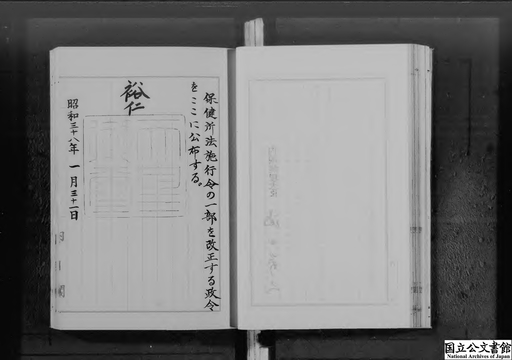 保健所法施行令の一部を改正する政令
をここに公布する。
裕仁
昭和三十八年一月三十一日
国立公文書館
National Archives of Japan